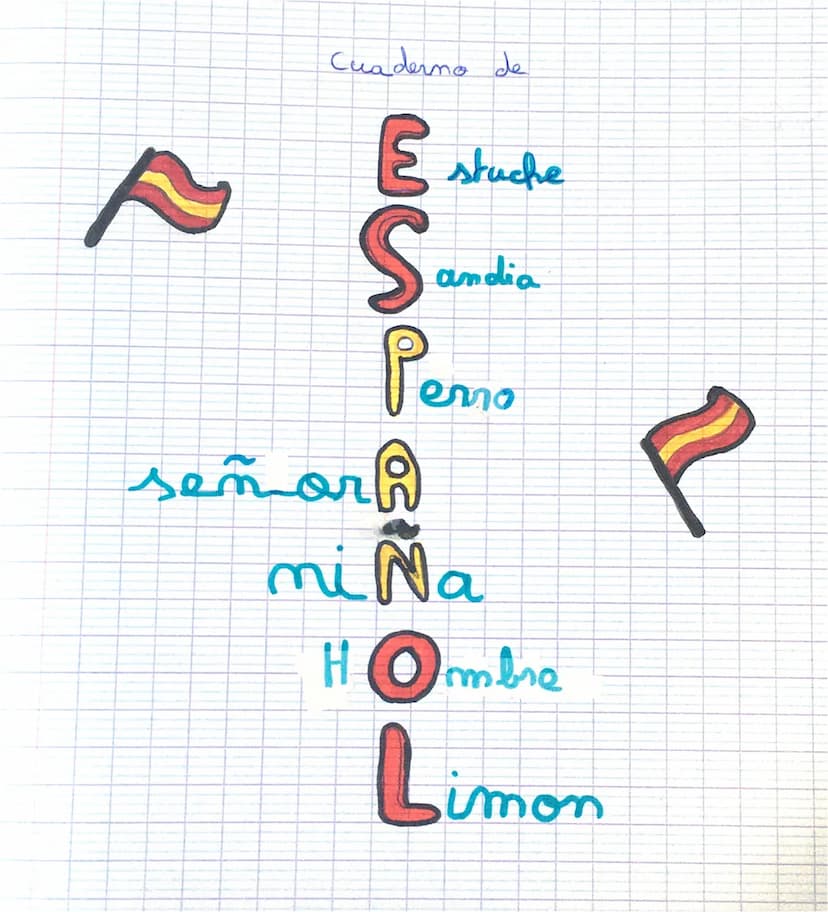 Cuaderno de
Estuche
Sandia
Perro
señorA
niÑa
HOmbre
Limon